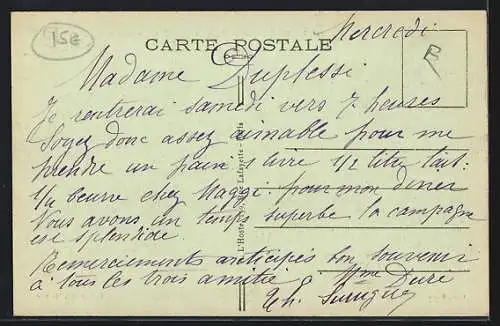 15€
Mercredi
CARTE POSTALE
Madame Duplessi
Je rentrerai samedi vers 7 heures
Soyez donc assez aimable pour me
prendre un pain 1 livre 1/2 litre lait.
1/4 beurre chez Maggi. pour mon diner
Nous avons un temps superbe la campagne
est splendide
Remerciements anticipés bon souvenir
à tous les trois amitié à Mme Duré